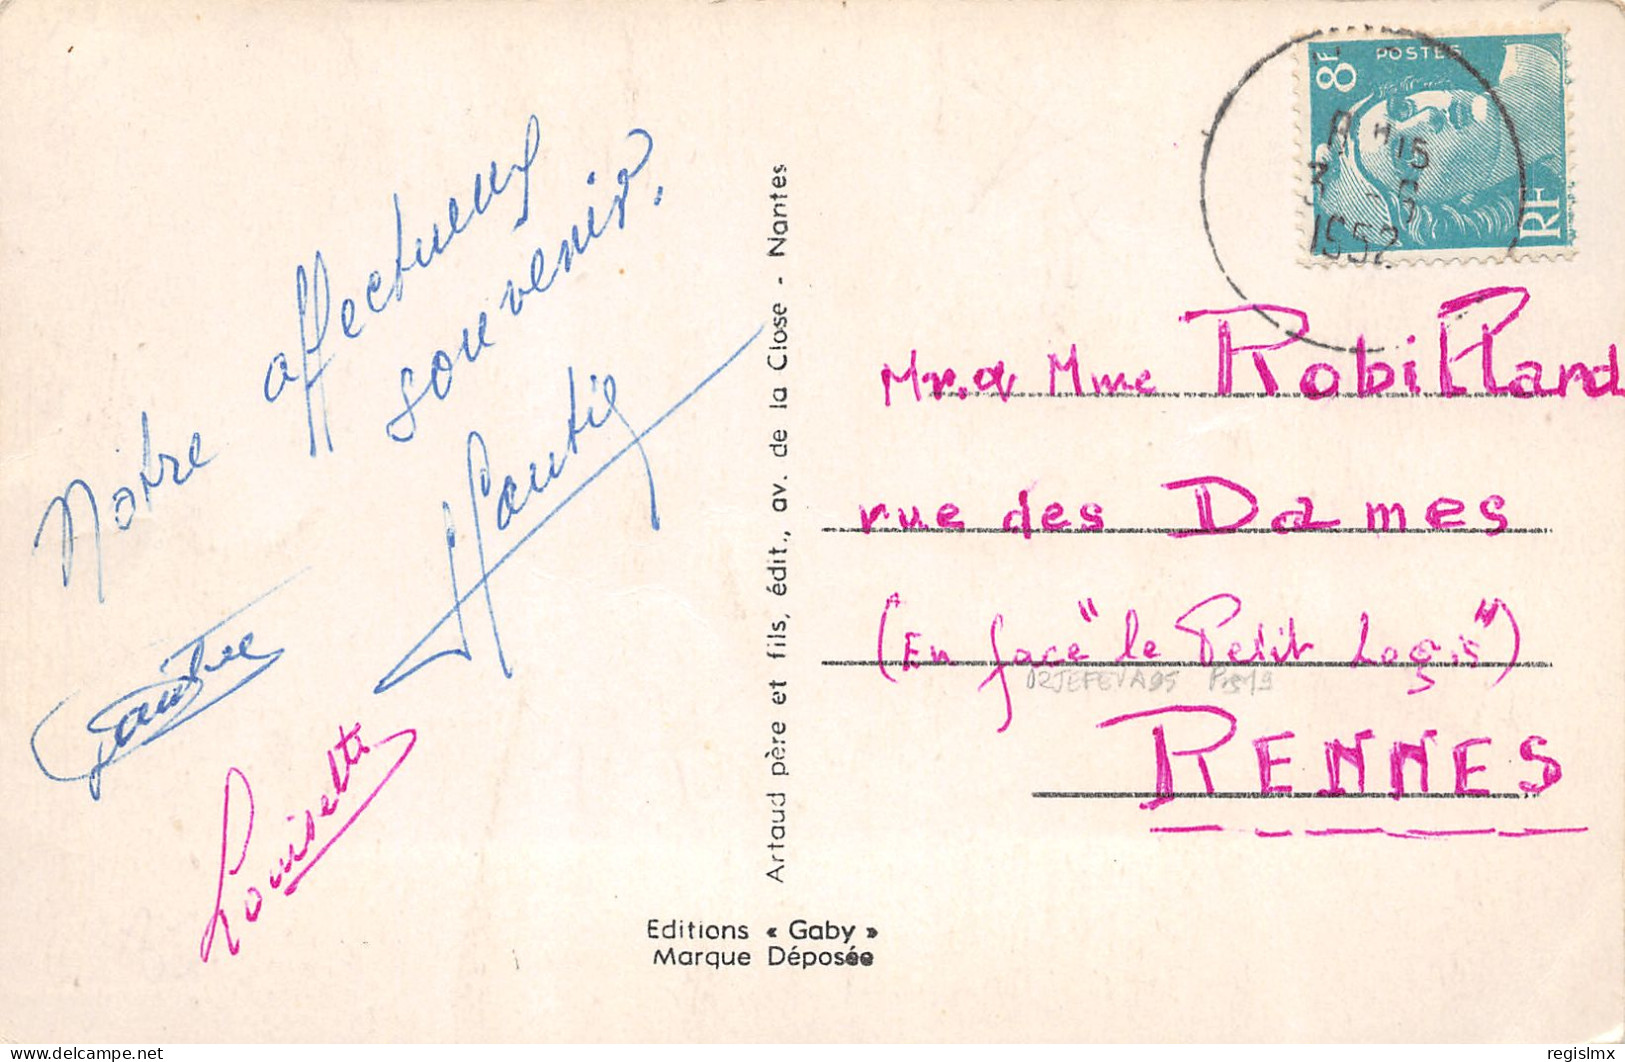 Notre affectueux
souvenir.
Louisette
Artaud père et fils, édit., av. de la Close - Nantes
Editions « Gaby »
Marque Déposée
8F
POSTES
RF
1952
Mr. & Mme Robillard
rue des Dames
(En face "le Petit Logis")
RENNES
delcampe.net
regislmx